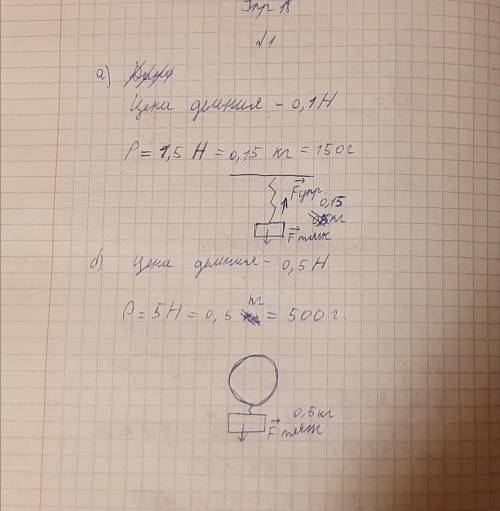 Упр 18
№1
а)
Цена деления - 0,1 Н
P = 1,5 Н = 0,15 кг = 150 г
F упр.
0,15
кг
F тяж
б) Цена деления - 0,5 Н
P = 5 Н = 0,5 кг = 500 г.
0,5 кг
F тяж